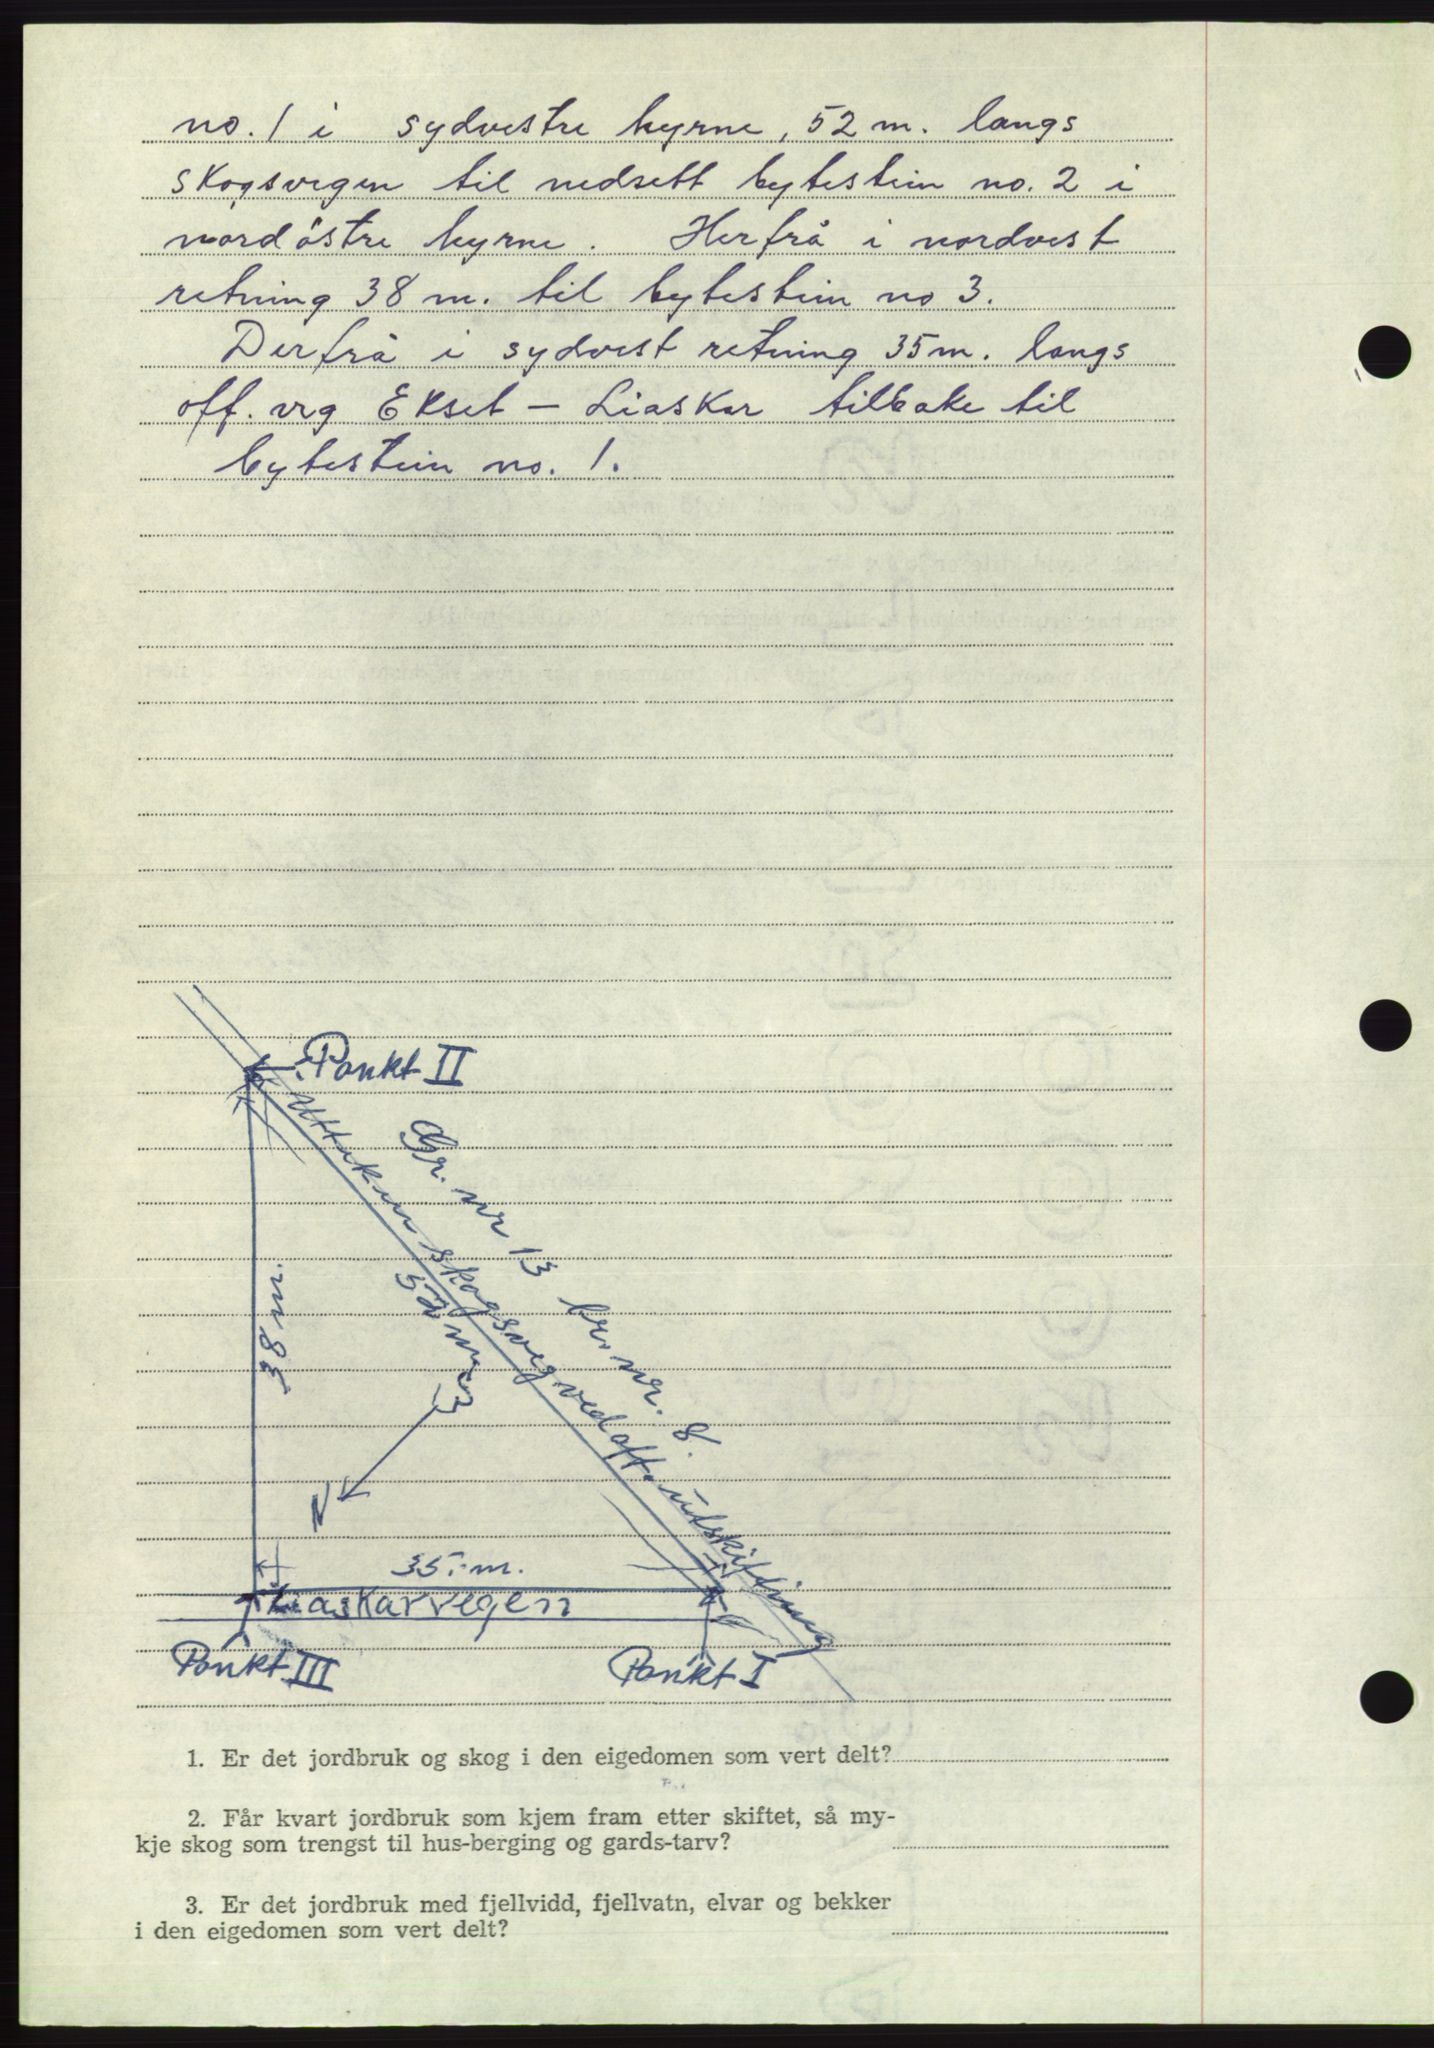 no. 1 i sydvestre hyrne, 52 m. langs
skogsvegen til nedsett bytestein no. 2 i
nordöstre hyrne. Herfrå i nordvest
retning 38 m. til bytestein no 3.
Derfrå i sydvest retning 35 m. langs
off. veg Ekset – Liaskar tilbake til
bytestein no. 1.
Ponkt II
Gr. nr 13 br. nr. 8.
Uttaken skogsveg ved off. utskifting
52 m.
38 m.
N
35.-m.
Liaskarvegen
Ponkt III
Ponkt I
1. Er det jordbruk og skog i den eigedomen som vert delt?
2. Får kvart jordbruk som kjem fram etter skiftet, så my-
kje skog som trengst til hus-berging og gards-tarv?
3. Er det jordbruk med fjellvidd, fjellvatn, elvar og bekker
i den eigedomen som vert delt?